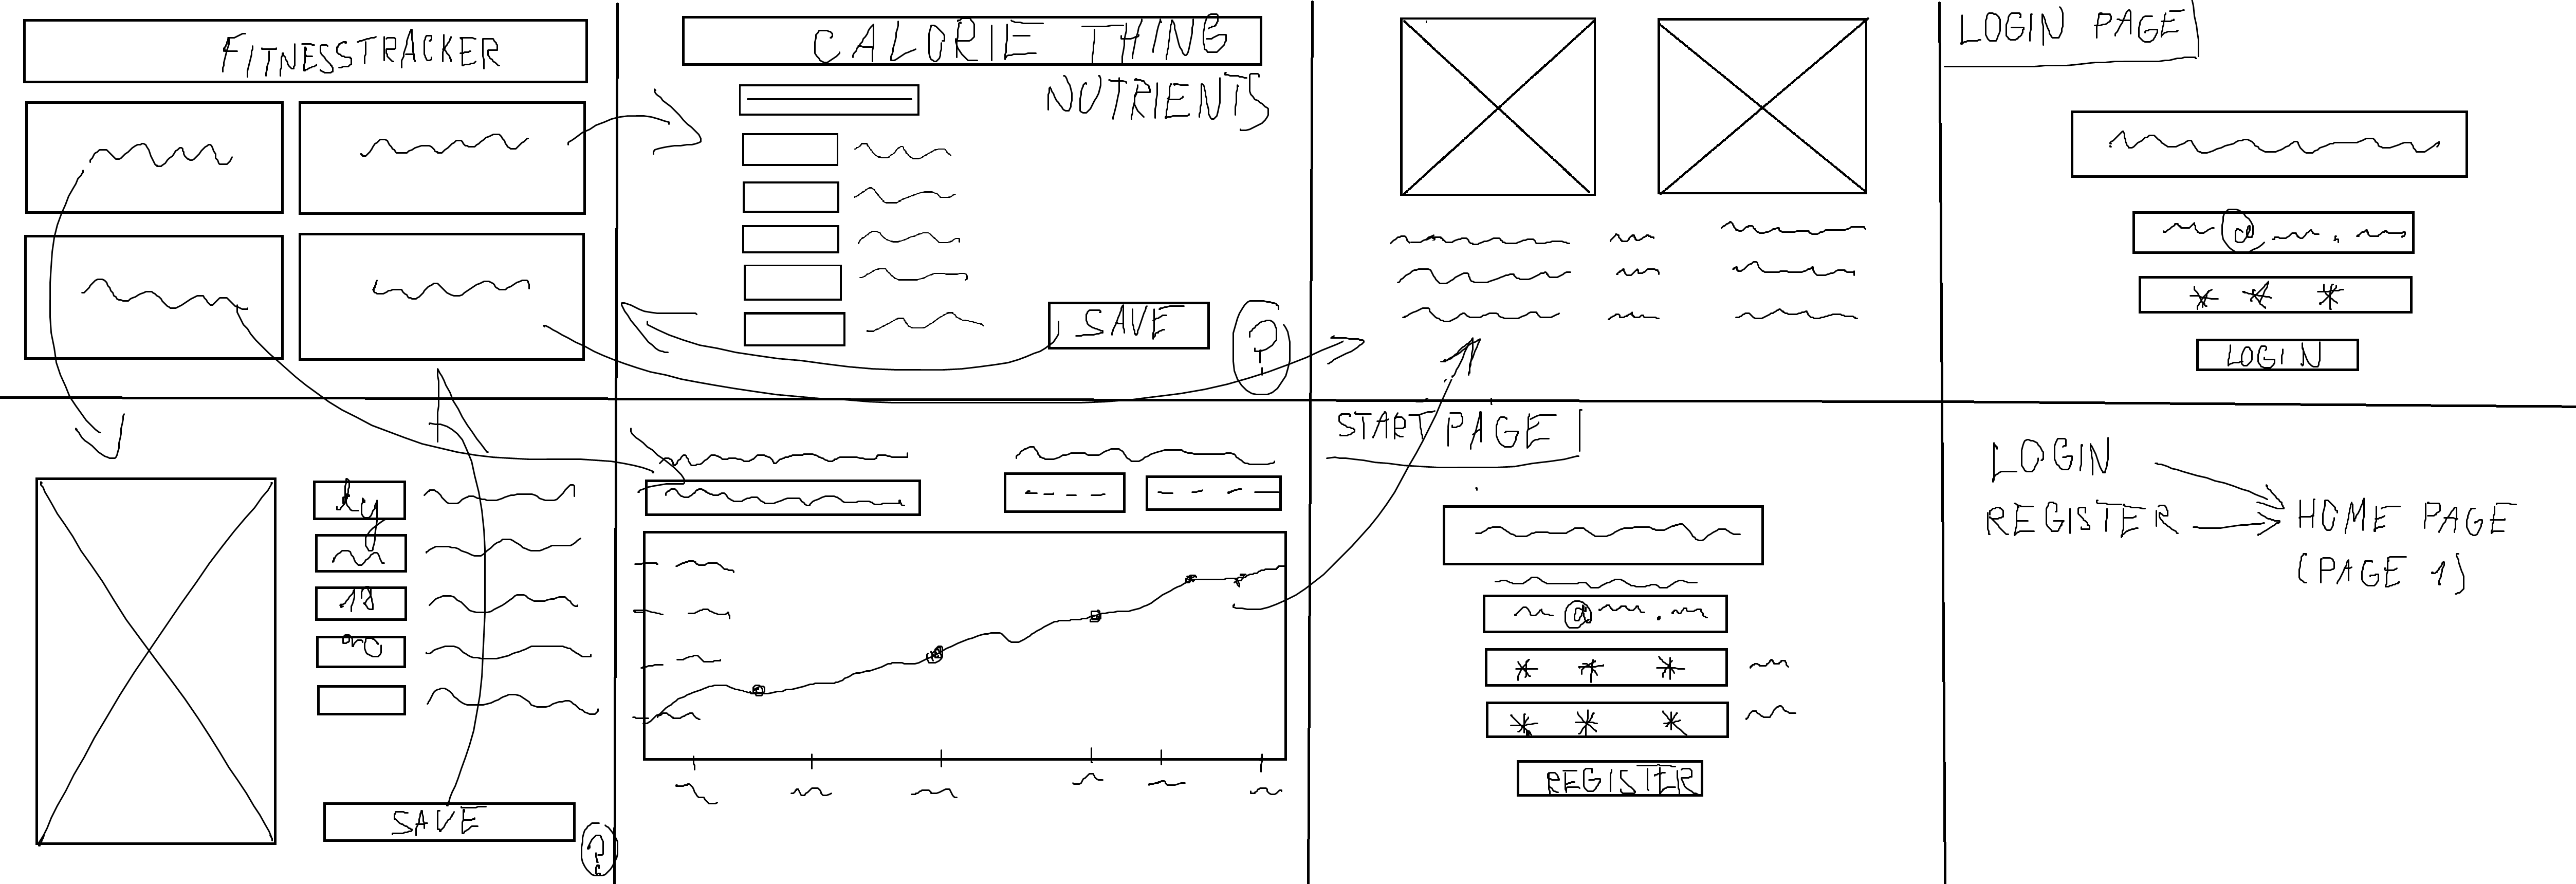 FITNESSTRACKER
CALORIE THING
NUTRIENTS
SAVE
?
LOGIN PAGE
@ .
* * *
LOGIN
kg
18
SAVE
?
START PAGE
@ .
* * *
* * *
REGISTER
LOGIN
REGISTER
HOME PAGE
(PAGE 1)